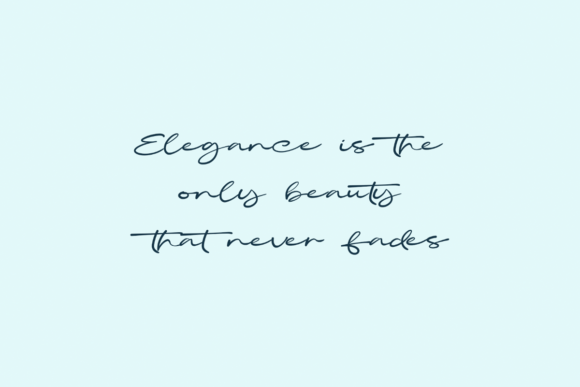 Elegance is the
only beauty
that never fades